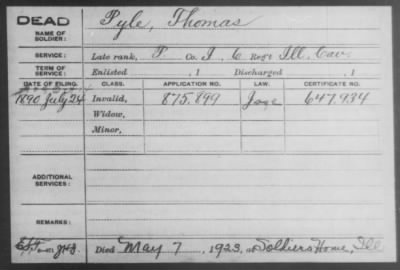 DEAD
NAME OF SOLDIER: Pyle, Thomas
SERVICE: Late rank, P. Co. I, 6 Reg't Ill. Cav.
TERM OF SERVICE: Enlisted , 1 Discharged , 1
DATE OF FILING. CLASS. APPLICATION NO. LAW. CERTIFICATE NO.
1890 July 24 Invalid, 875.899 647.934
Widow,
Minor,
ADDITIONAL SERVICES:
REMARKS:
Died May 7, 1923, at Soldiers Home, Ill